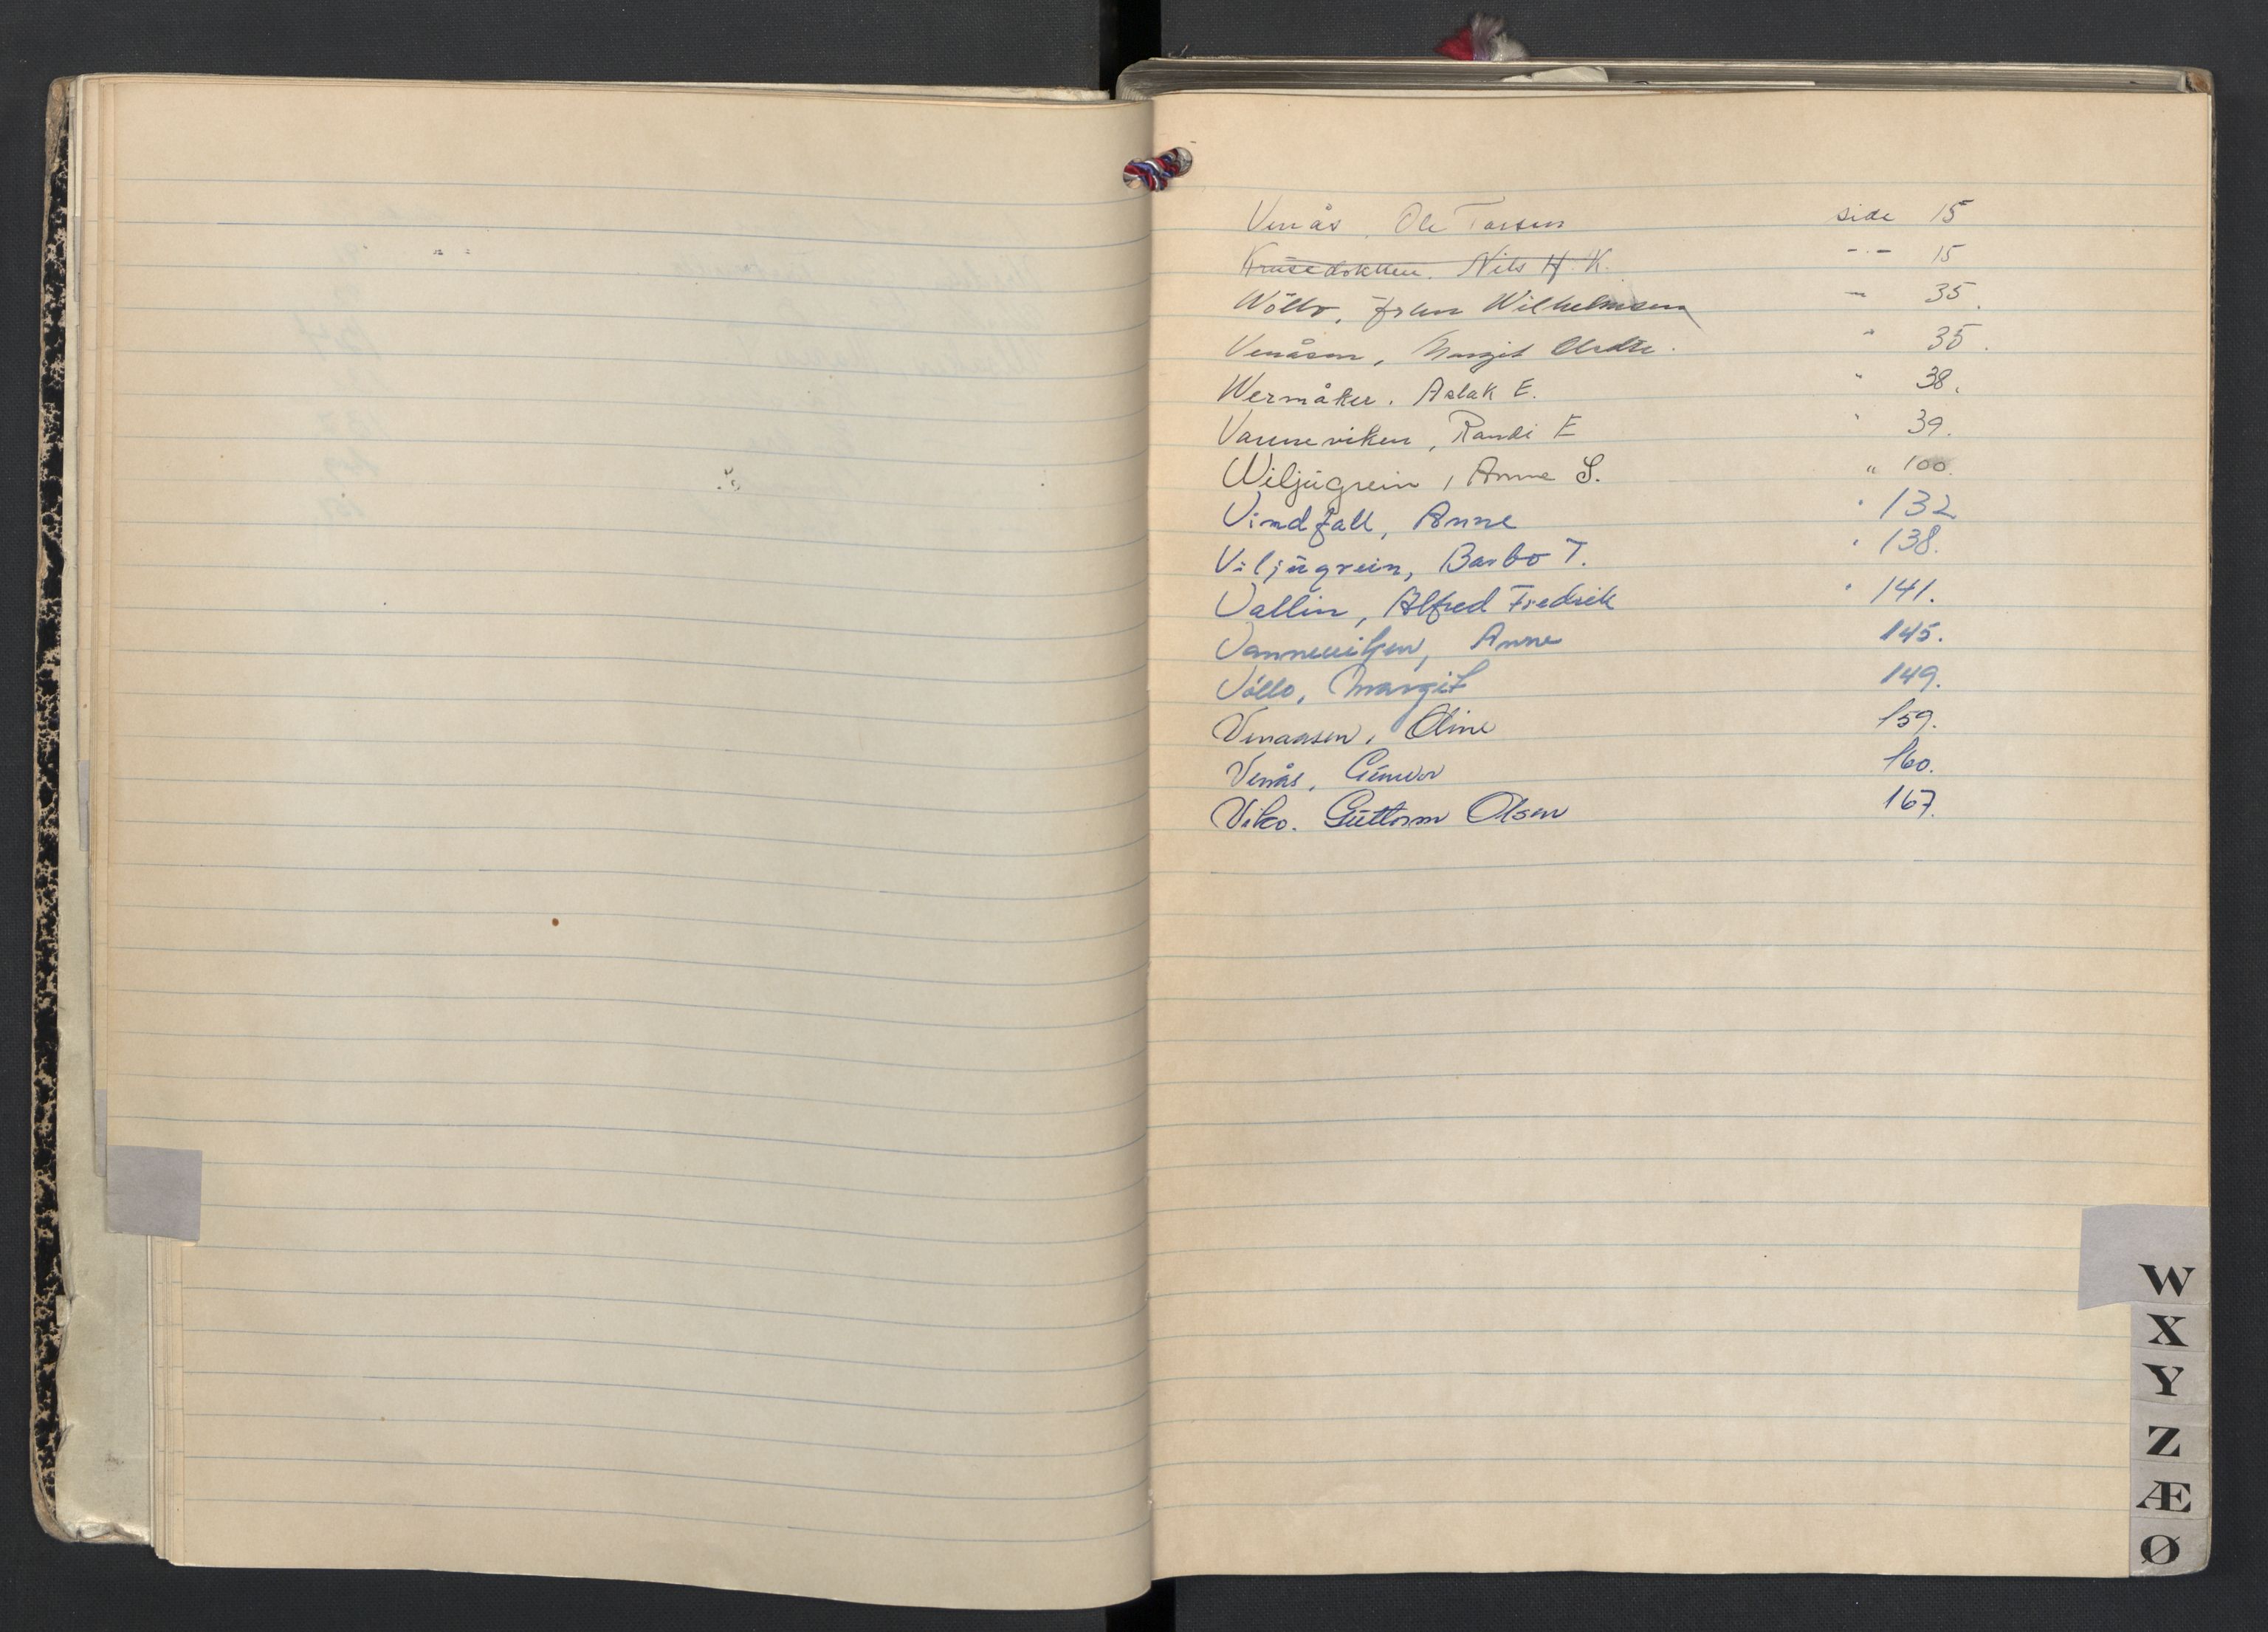 Venås, Ole Tarsen side 15
Krusedokken. Nils H. K. -"- 15
Wöllo, fru Wilhelmsen " 35.
Venåsen, Margit Andte. " 35.
Wermåker. Aslak E. " 38.
Vanneviken, Randi E " 39.
Wiljugrein, Anne S. " 100.
Vindfall, Anne " 132
Viljugrein, Barbo T. " 138.
Vallin, Alfred Fredrik " 141.
Vanneviken, Anne 145.
Völlo, Margit 149.
Venaasen, Oline 159.
Venås, Gunvor 160.
Viko. Guttorm Olsen 167.
W
X
Y
Z
Æ
Ø